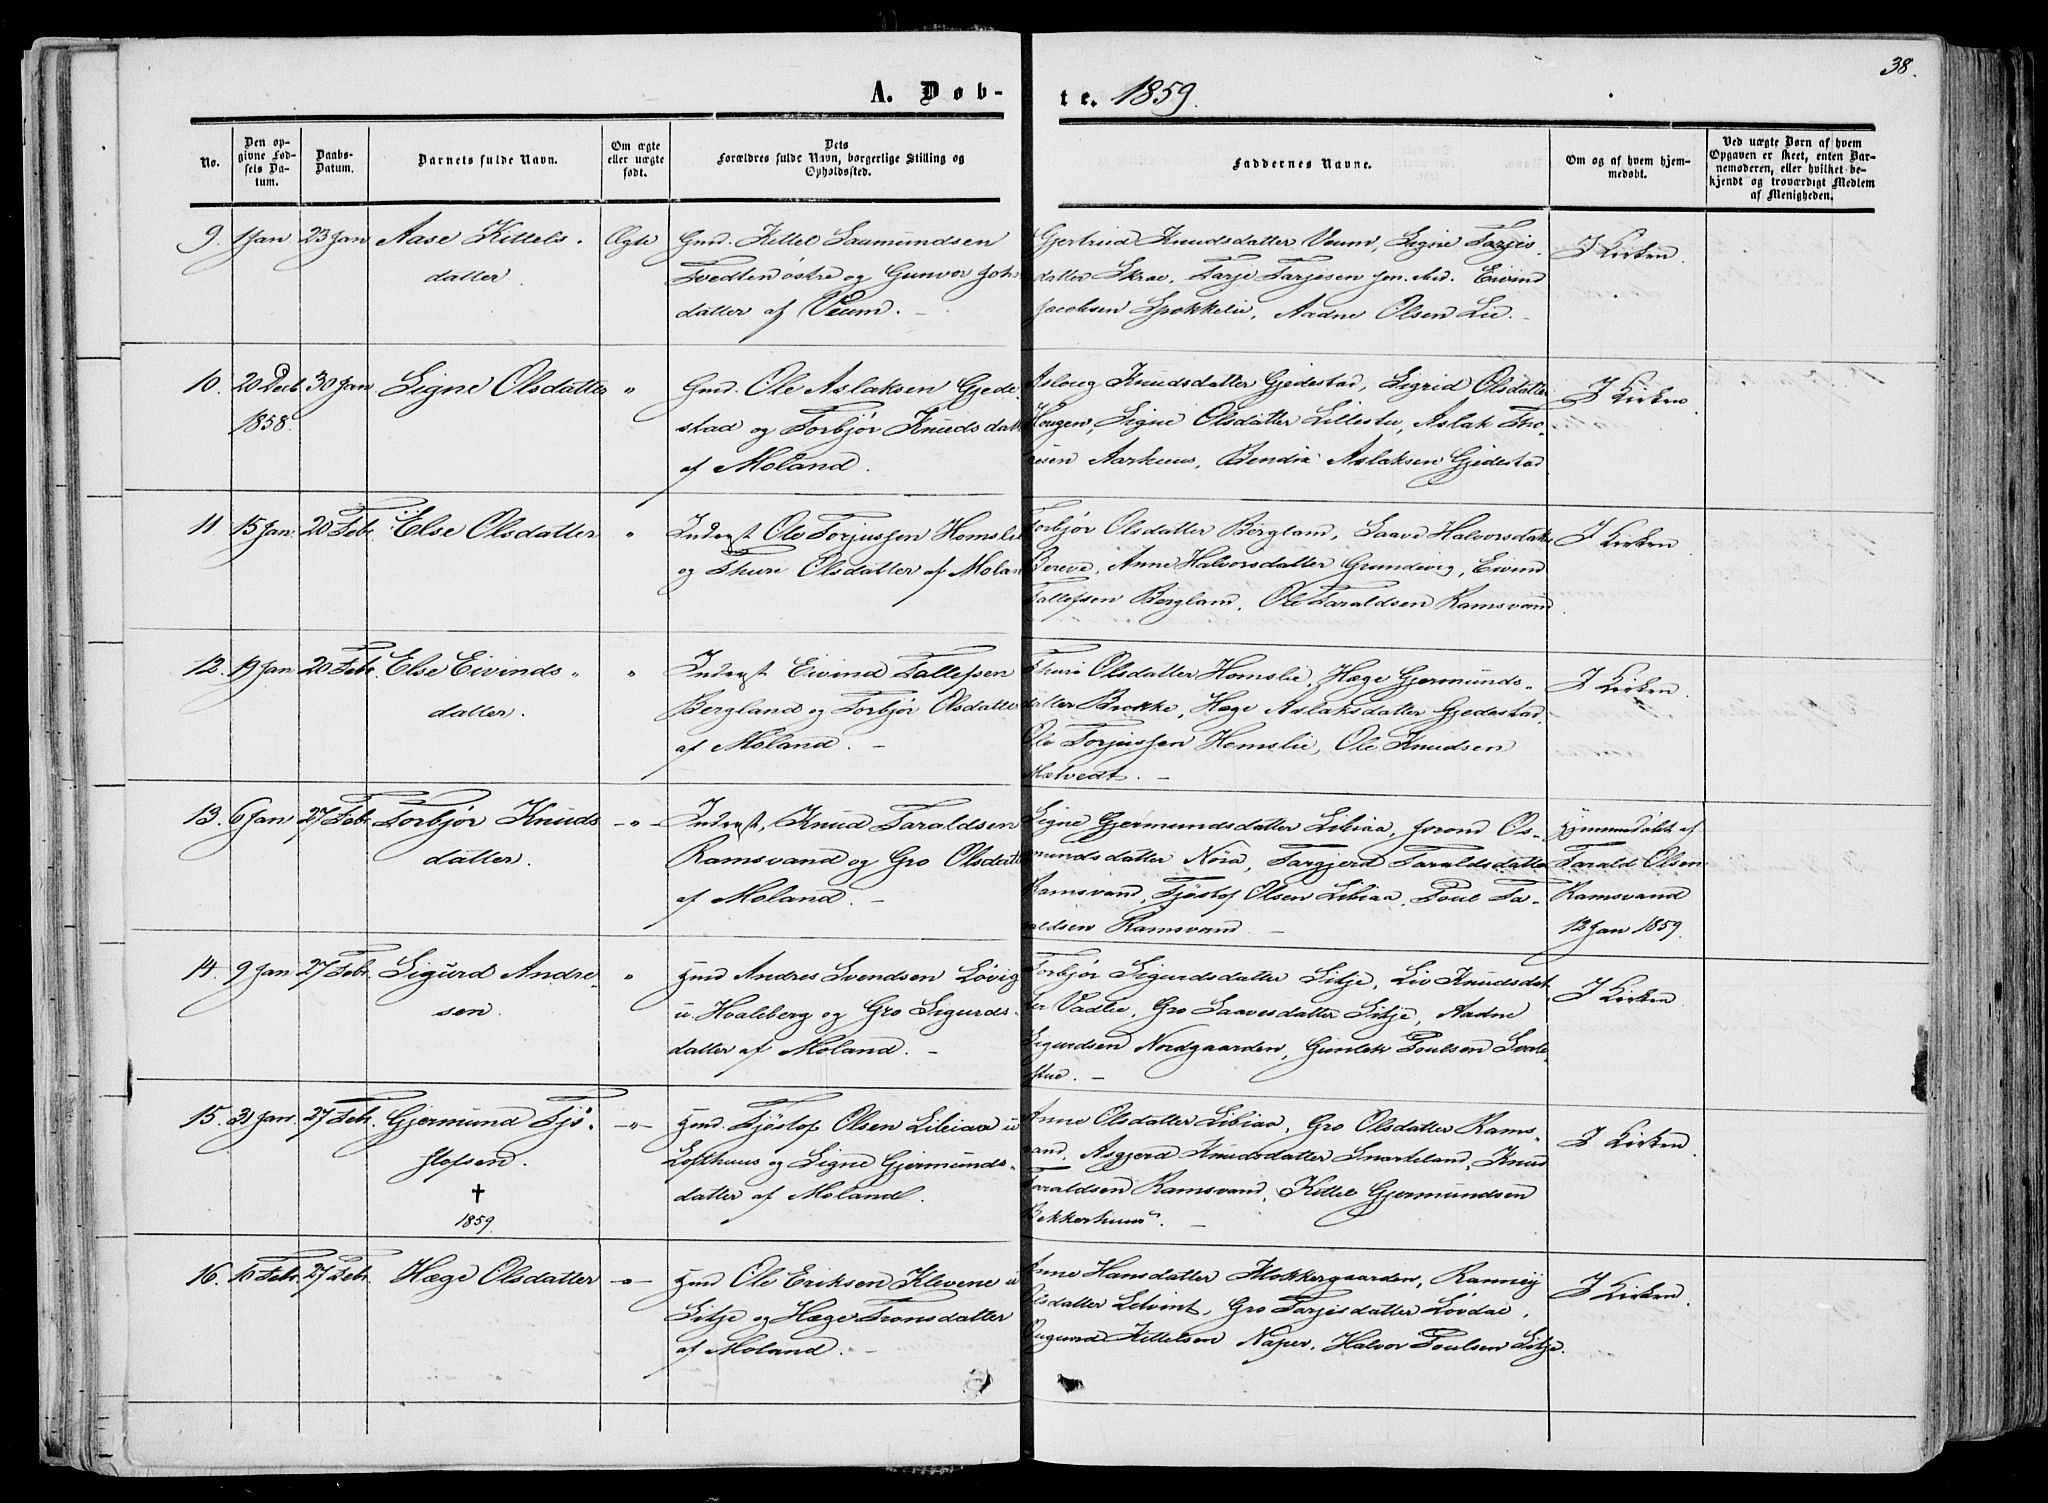 38.
A. Døb-
te. 1859.
No.
Den op-
givne Fød-
sels Da-
tum.
Daabs-
Datum.
Barnets fulde Navn.
Om ægte
eller uægte
født.
Dets
Forældres fulde Navn, borgerlige Stilling og
Opholdssted.
Faddernes Navne.
Om og af hvem hjem-
medøbt.
Ved uægte Børn af hvem
Opgaven er skeet, enten Bar-
nemoderen, eller hvilket be-
kjendt og troværdigt Medlem
af Menigheden.
9. 1 Jan 23 Jan Aase Kittels-
datter.
Ægte
Gmd. Kittel Saamundsen
Tvedten østre og Gunvor Joh
datter af Veum. –
Gjertrud Knudsdatter Veum, Signe Tarjis-
datter Skrae, Tarje Tarjesen Eivind
Jacobsen Spokkelie, Aadne Olsen Lie. –
I Kirken.
10. 20 Decb. 30 Jan Signe Olsdatter
1858.
"
Gmd. Ole Aslaksen Gjede-
stad og Torbjør Knudsdatt
af Moland.
Aslaug Knudsdatter Gjedestad, Sigrid Olsdatter
Hougen, Signe Olsdatter Lillestu, Aslak Tho-
resen Aarhuus, Bendix Aslaksen Gjedestad
I Kirken
11. 15 Jan. 20 Febr. Else Olsdatter
"
Inderst Ole Torjussen Homslie
og Thuri Olsdatter af Molan
Torbjør Olsdatter Bergland, Saave Halvorsdatter
Bereve, Anne Halvorsdatter Grundvig, Eivind
Tallefsen Bergland, Ole Taraldsen Ramsvand
I Kirken
12. 19 Jan 20 Febr. Else Eivinds-
datter.
"
Inderst Eivind Tallefsen
Bergland og Torbjør Olsdatter
af Moland. –
Thuri Olsdatter Homslie, Hæge Gjermunds-
datter Brokke, Hæge Aslaksdatter Gjedestad
Ole Torjussen Homslie, Ole Knudsen
Mælvedt. –
I Kirken.
13. 6 Jan 27 Febr Torbjør Knuds
datter.
–"–
Inderst, Knud Taraldsen
Ramsvand og Gro Olsdatt
af Moland. –
Signe Gjermundsdatter Libiaa, Jorond Os-
mundsdatter Nöra, Targjerd Taraldsdatter
Ramsvand, Tjöstof Olsen Libiaa, Poul Ta-
raldsen Ramsvand. –
Hjemmedøbt af
Tarald Olsen
Ramsvand
12 Jan 1859.
14. 9 Jan 27 Febr. Sigurd Andre-
sen.
"
Hmd Andres Svendsen Lövig
u. Hvaleberg og Gro Sigurds-
datter af Moland. –
Torbjør Sigurdsdatter Sitje, Liv Knudsdat
ter Vadlie, Gro Saavesdatter Sitje, Aadne
Sigurdsen Nordgaarden, Gunlek Poulsen Svale-
stue. –
I Kirken
15. 31 Jan. 27 Febr. Gjermund Tjö-
stofsen.
✝
1859.
–"–
Hmd. Tjöstof Olsen Libiaa u
Lofthuus og Signe Gjermunds-
datter af Moland.
Anne Olsdatter Libiaa, Gro Olsdatter Rams-
vand, Asgjerd Knudsdatter Snarteland, Knud
Taraldsen Ramsvand, Kittel Gjermundsen
Bekkerhuus. –
I Kirken
16. 16 Febr. 27 Febr. Hæge Olsdatter
–"–
Hmd Ole Eriksen Klevene u
Sitje og Hæge Tronsdatter
af Moland. –
Anne Hansdatter Klokkergaarden, Ranneij
Olsdatter Letvint, Gro Tarjisdatter Lövdae,
Ougund Kittelsen Naper, Halvor Poulsen Sitje.
I Kirken